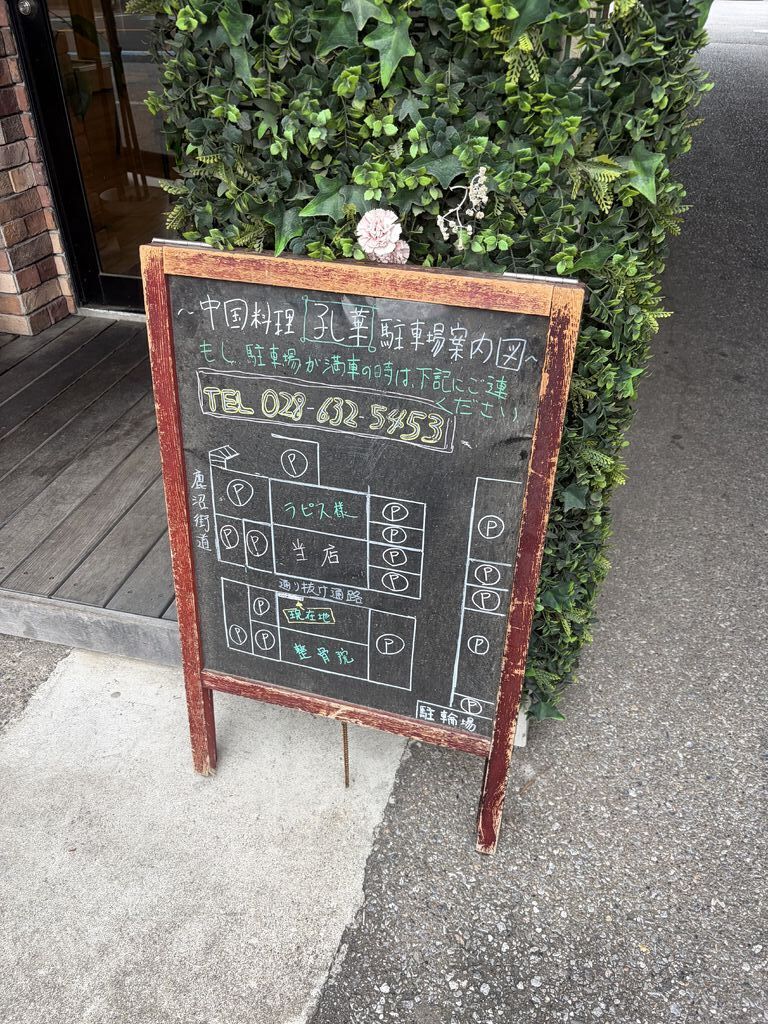 ～中国料理 孔華 駐車場案内図～
もし、駐車場が満車の時は、下記にご連
ください
TEL 028-632-5453
鹿沼街道
P
P
ラピス様
P
P
P
P
P
当店
P
P
P
P
P
通り抜け通路
P
現在地
P
P
整骨院
P
P
P
駐輪場